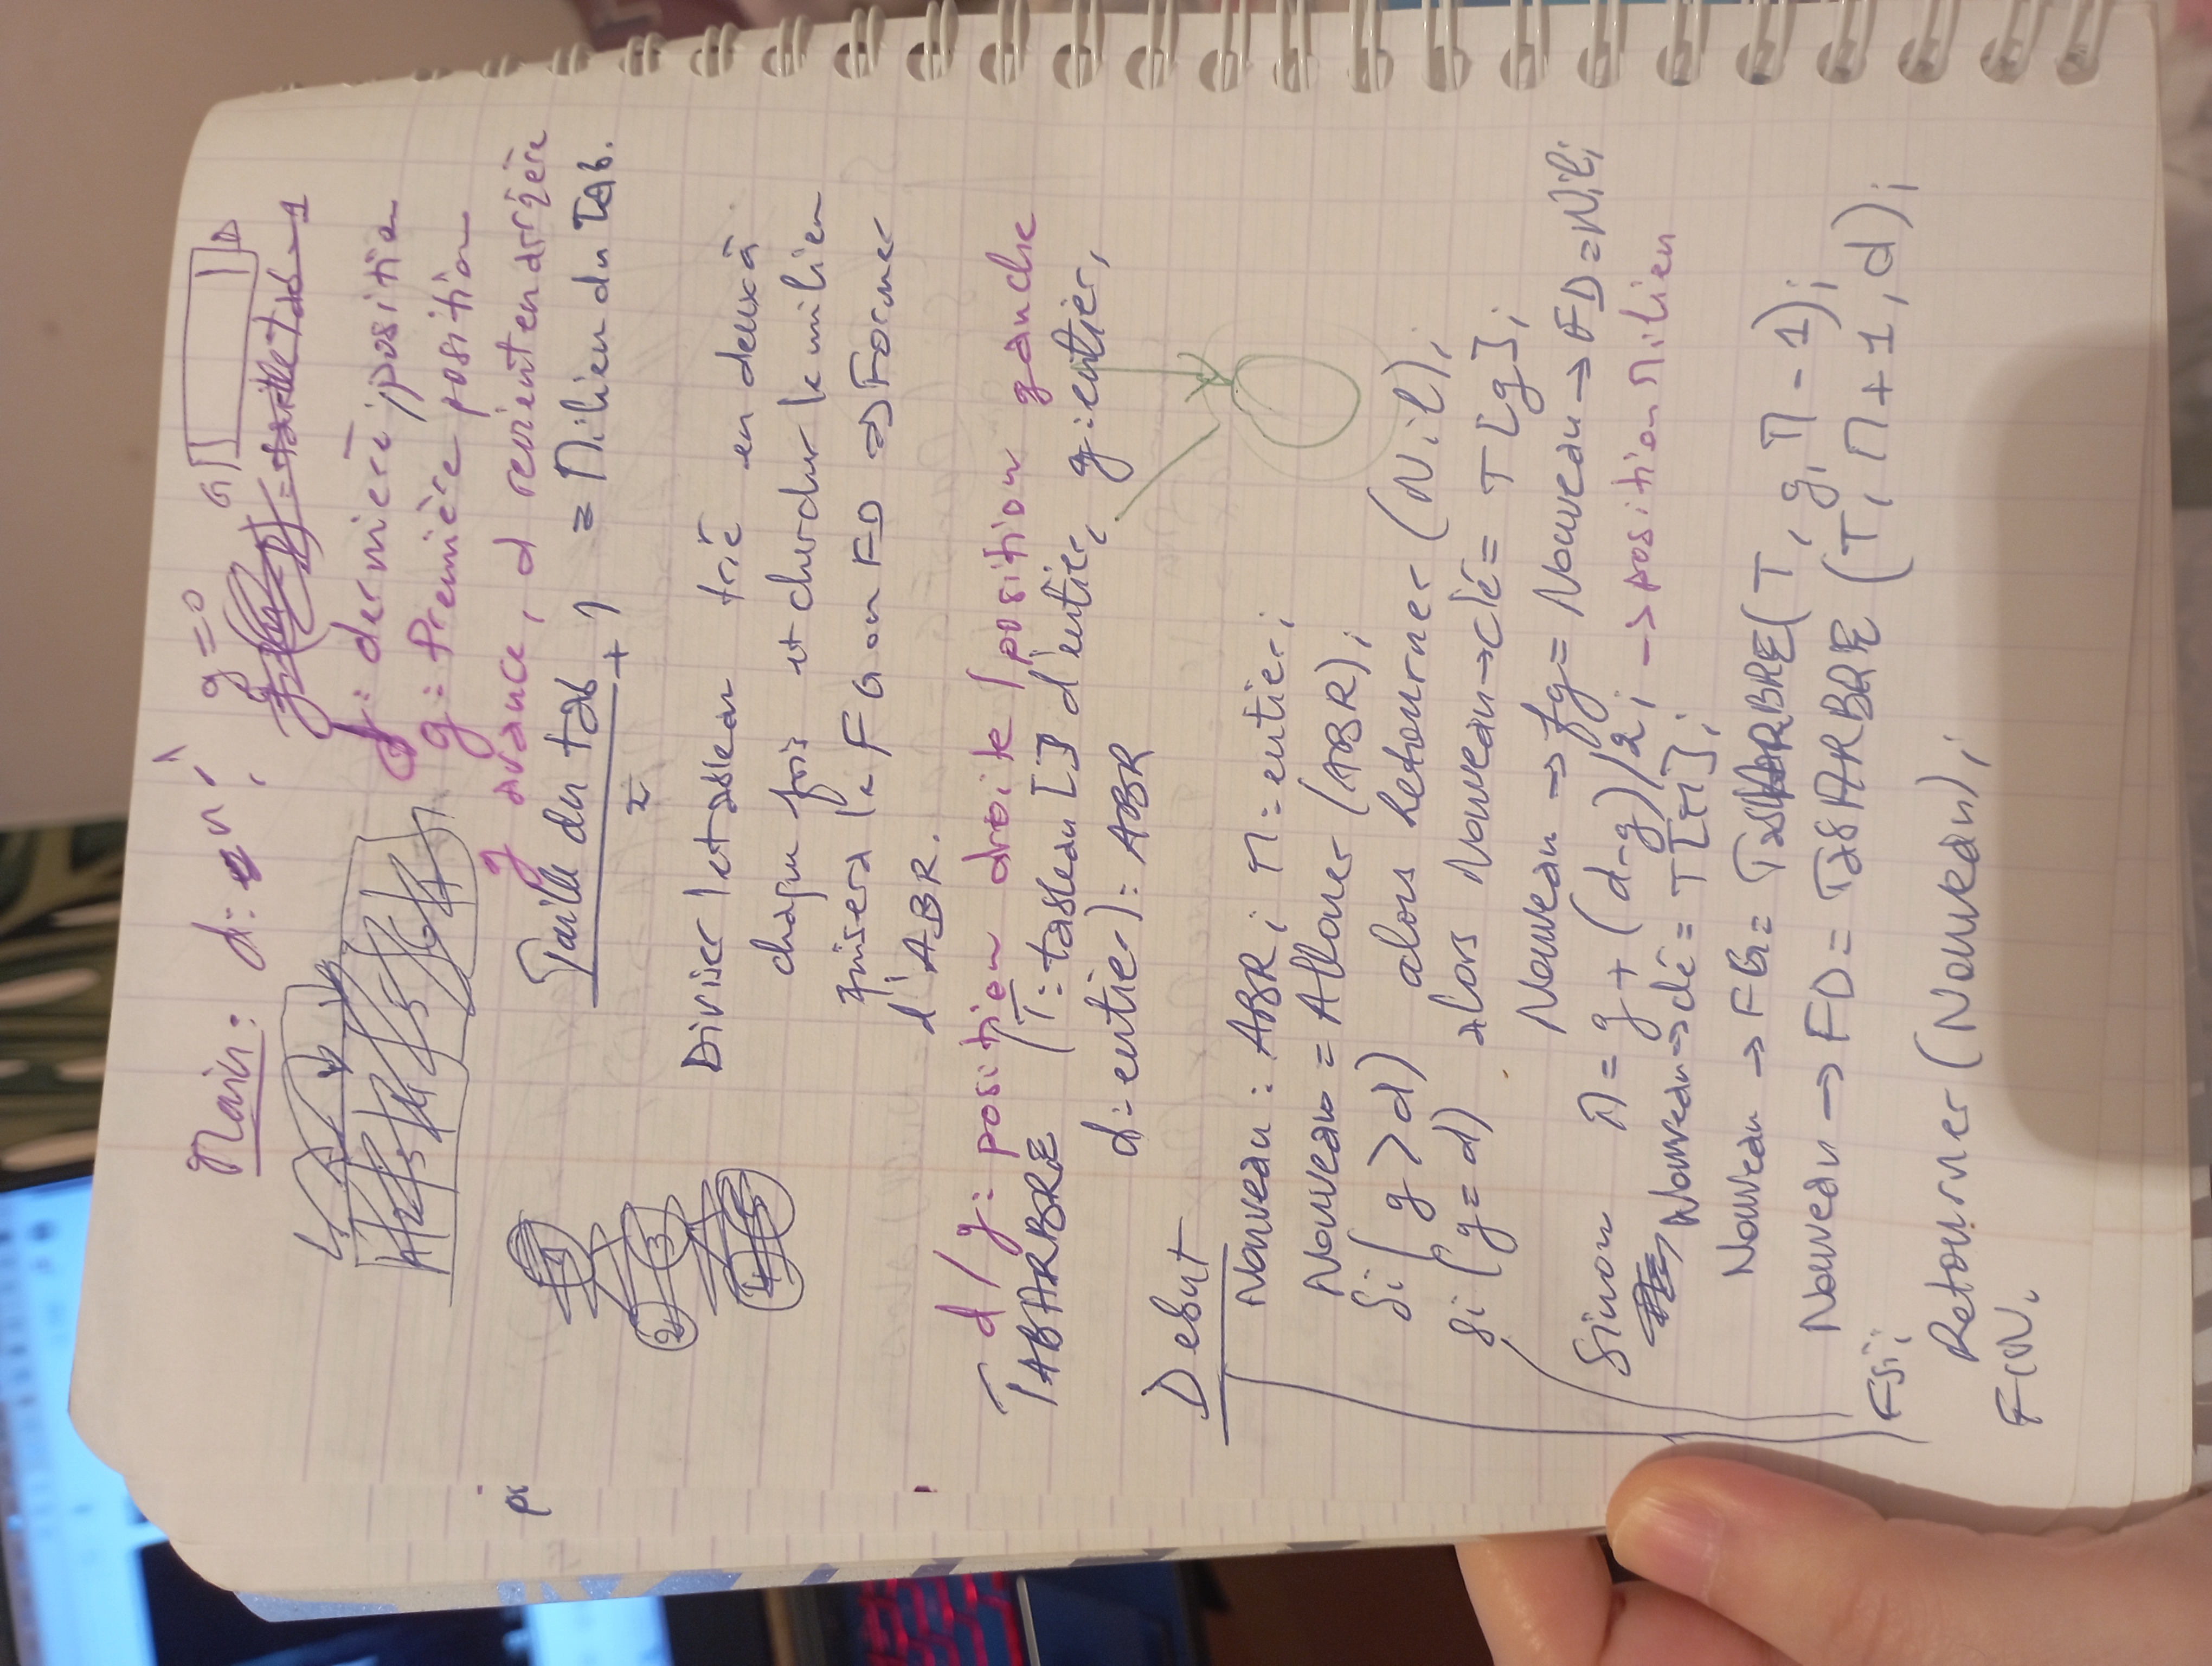 Main: d = n-1; g=0 G D
= taille tab - 1
1 2 3 4 5 6 7
d: dernière position
g: Première position
g avance, d revient en arrière
Taille du tab / 2 + 1 = Milieu du Tab.
1
2 3
4 5
Diviser le tableau trié en deux à
chaque fois et chercher le milieu
qui sera le FG ou FD => Former
d'ABR.
d/g: position droite / position gauche
TABARBRE (T: tableau [] d'entier, g: entier,
d: entier): ABR
Debut
Nouveau: ABR; M: entier;
Nouveau = Allouer (ABR);
Si (g > d) alors Retourner (Nil);
Si (g = d) alors Nouveau→clé = T[g];
Nouveau → fg = Nouveau → FD = Nil;
Sinon M = g + (d-g)/2; → position Milieu
Nouveau→clé = T[M];
Nouveau → FG = TabARBRE(T, g, M-1);
Nouveau → FD = TabARBRE (T, M+1, d);
FSi;
Retourner (Nouveau);
FIN.